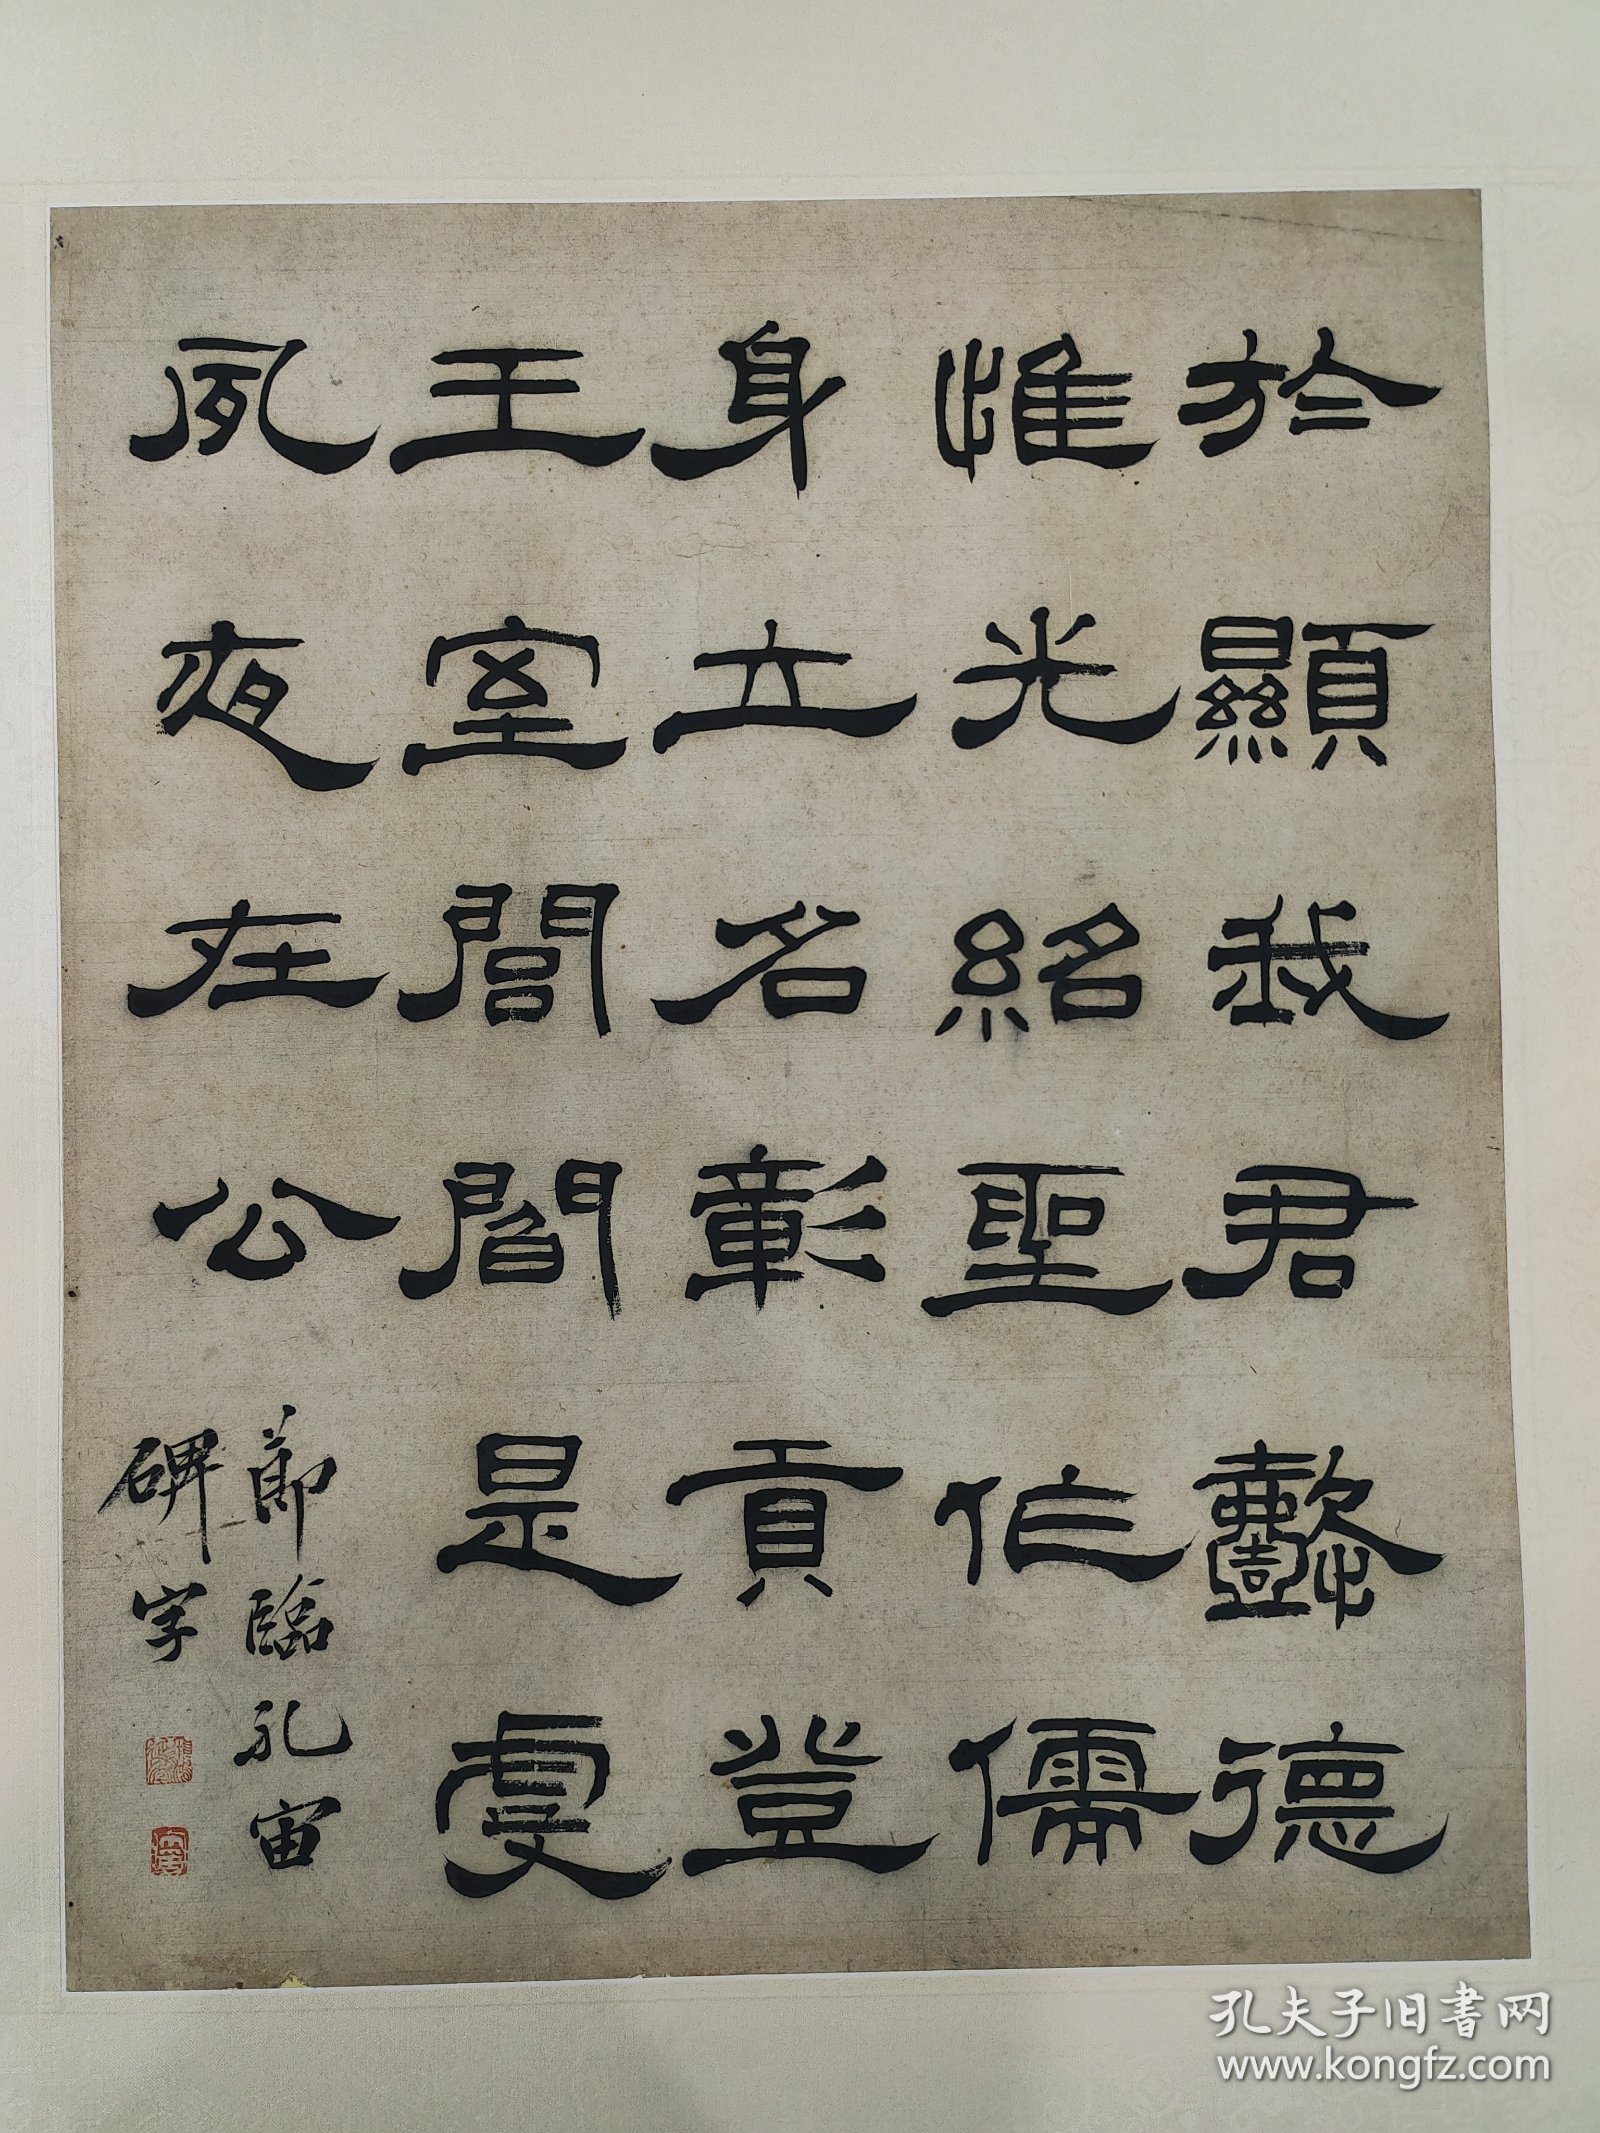 於顯我君懿德
惟光紹聖作儒
身立名彰貢登
王室閭閻是虔
夙夜在公
節臨孔宙
碑字
孔夫子旧书网
www.kongfz.com